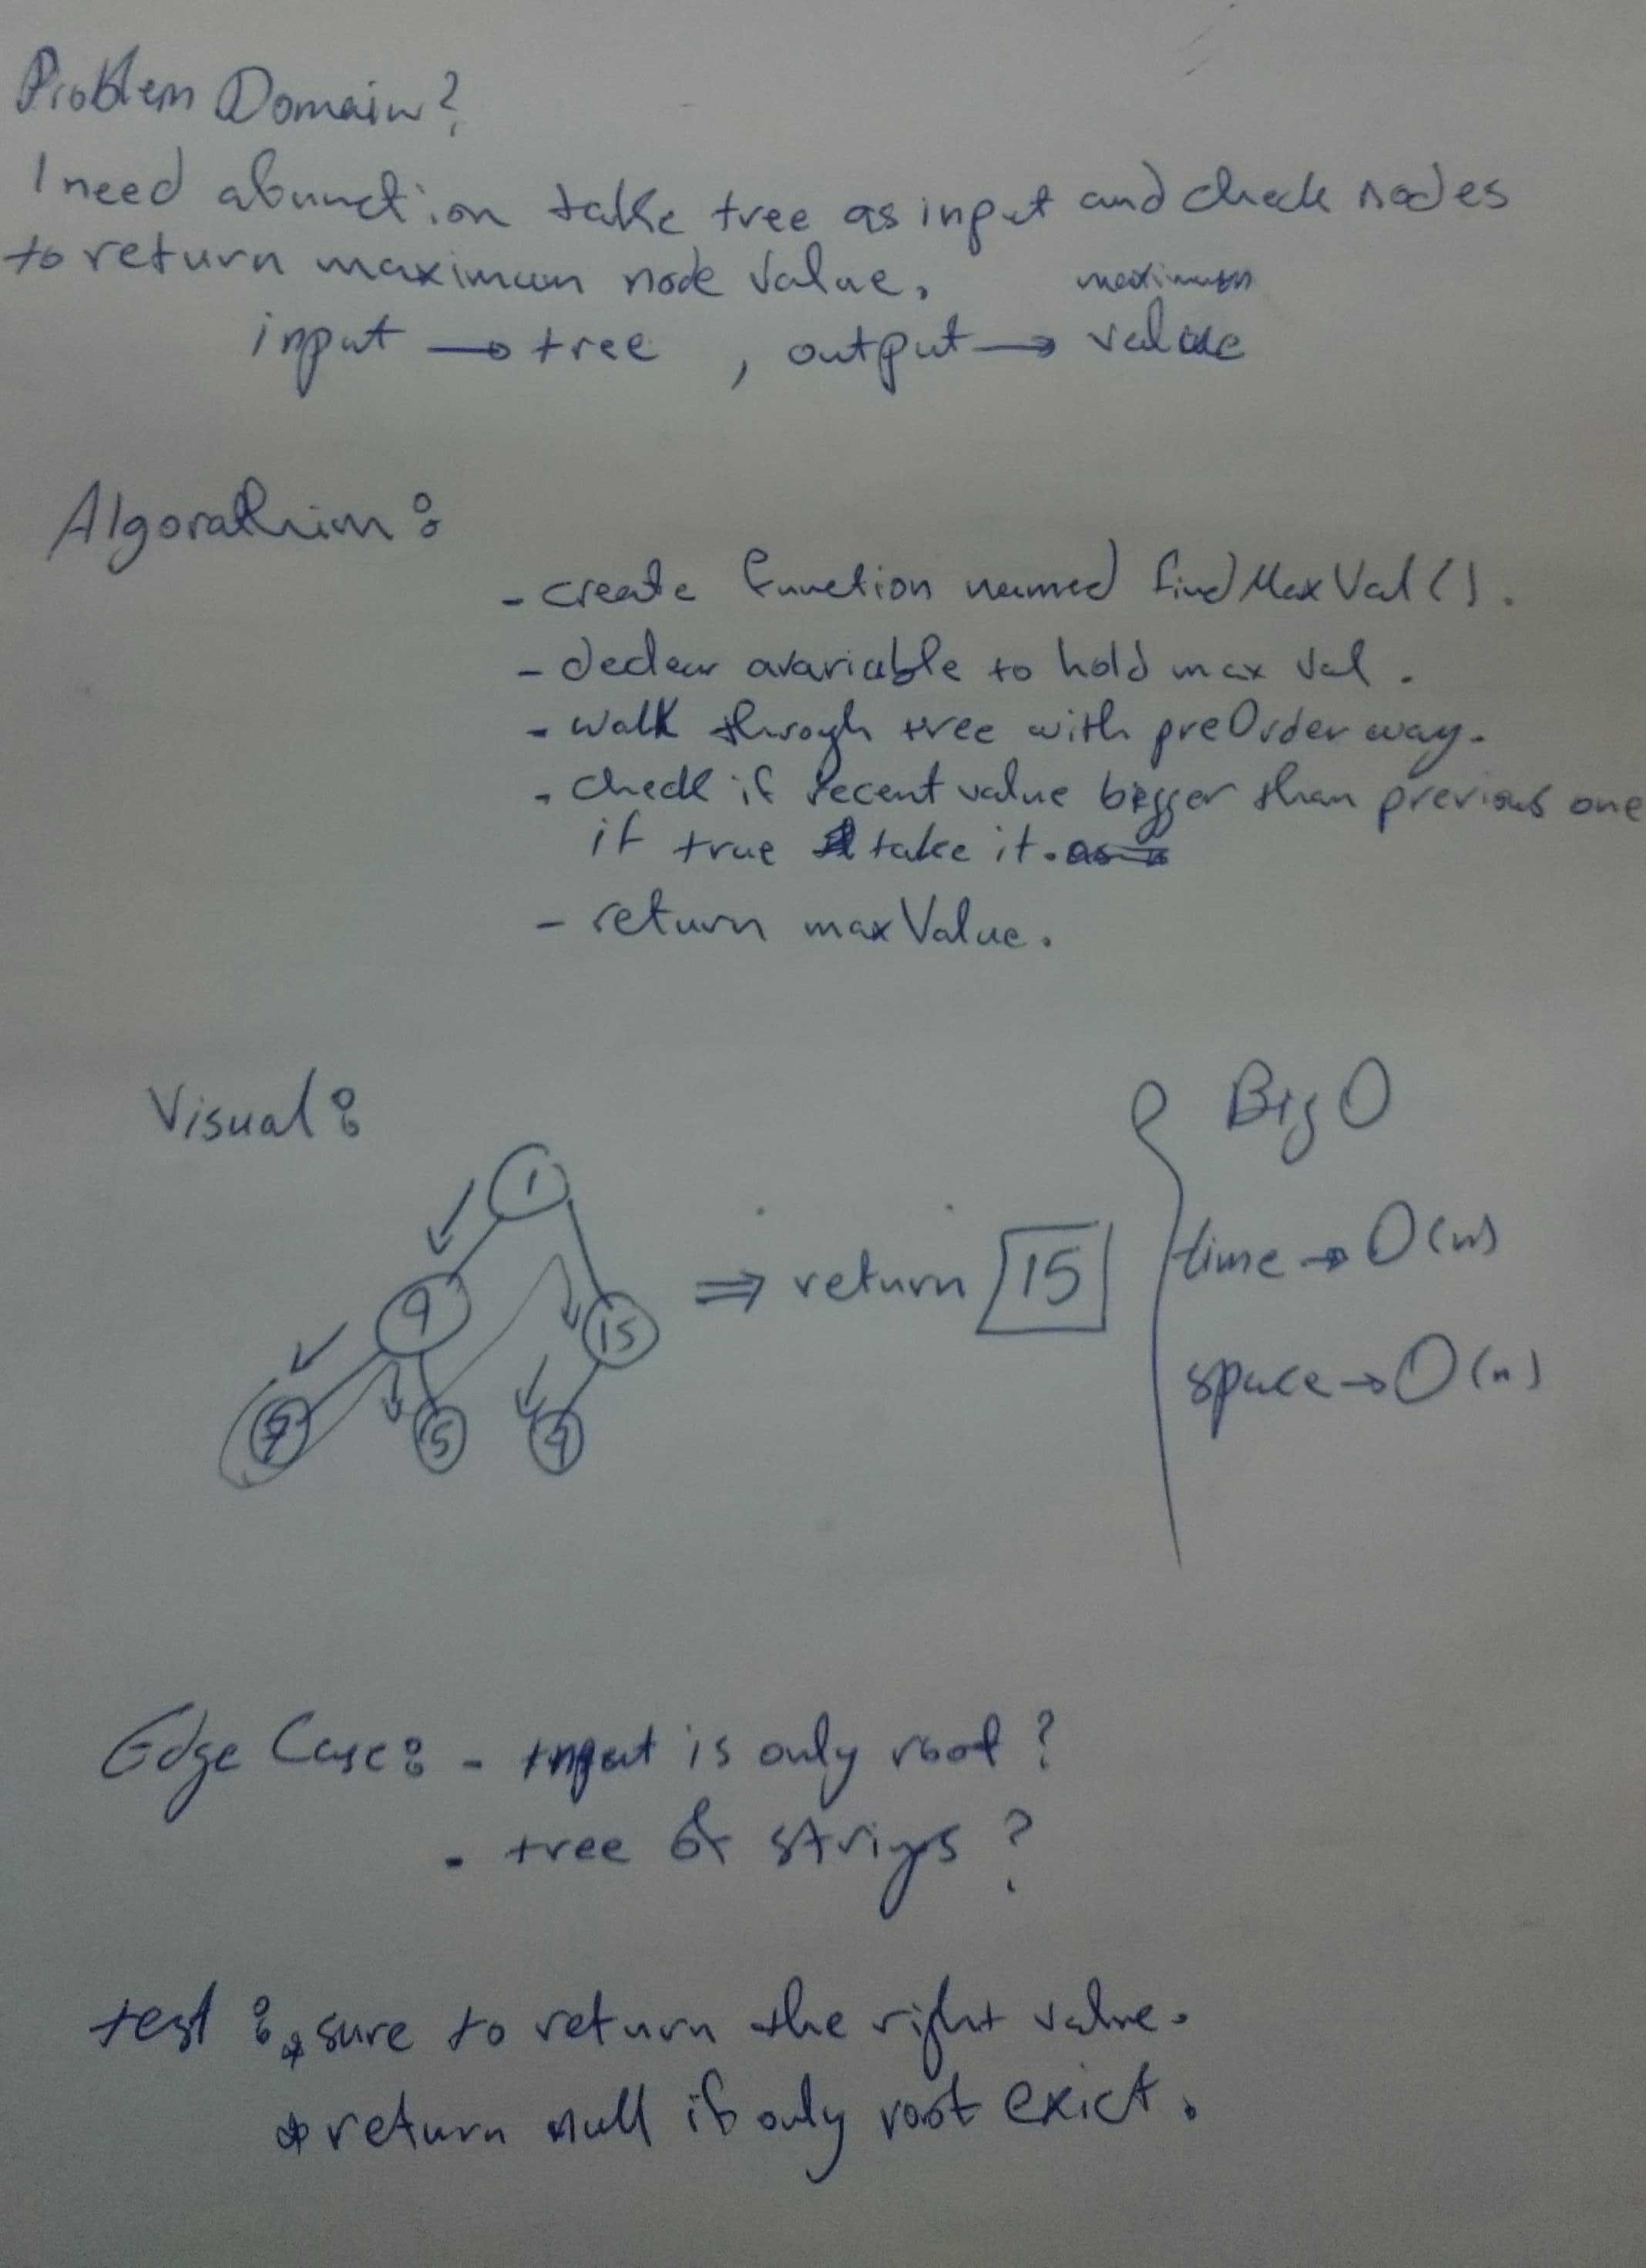 Problem Domain?
I need a function take tree as input and check nodes
to return maximum node value.
maximum
input → tree , output → value
Algorathim:
- create function named findMaxVal().
- declear a variable to hold max val.
- walk throgh tree with preOrder way.
- check if recent value bigger than previous one
if true take it.
- return maxValue.
Visual:
1
9
15
5
4
⇒ return 15
Big O
time → O(n)
space → O(n)
Edge Case: - input is only root?
- tree of strings?
test: * sure to return the right value.
* return null if only root exict.